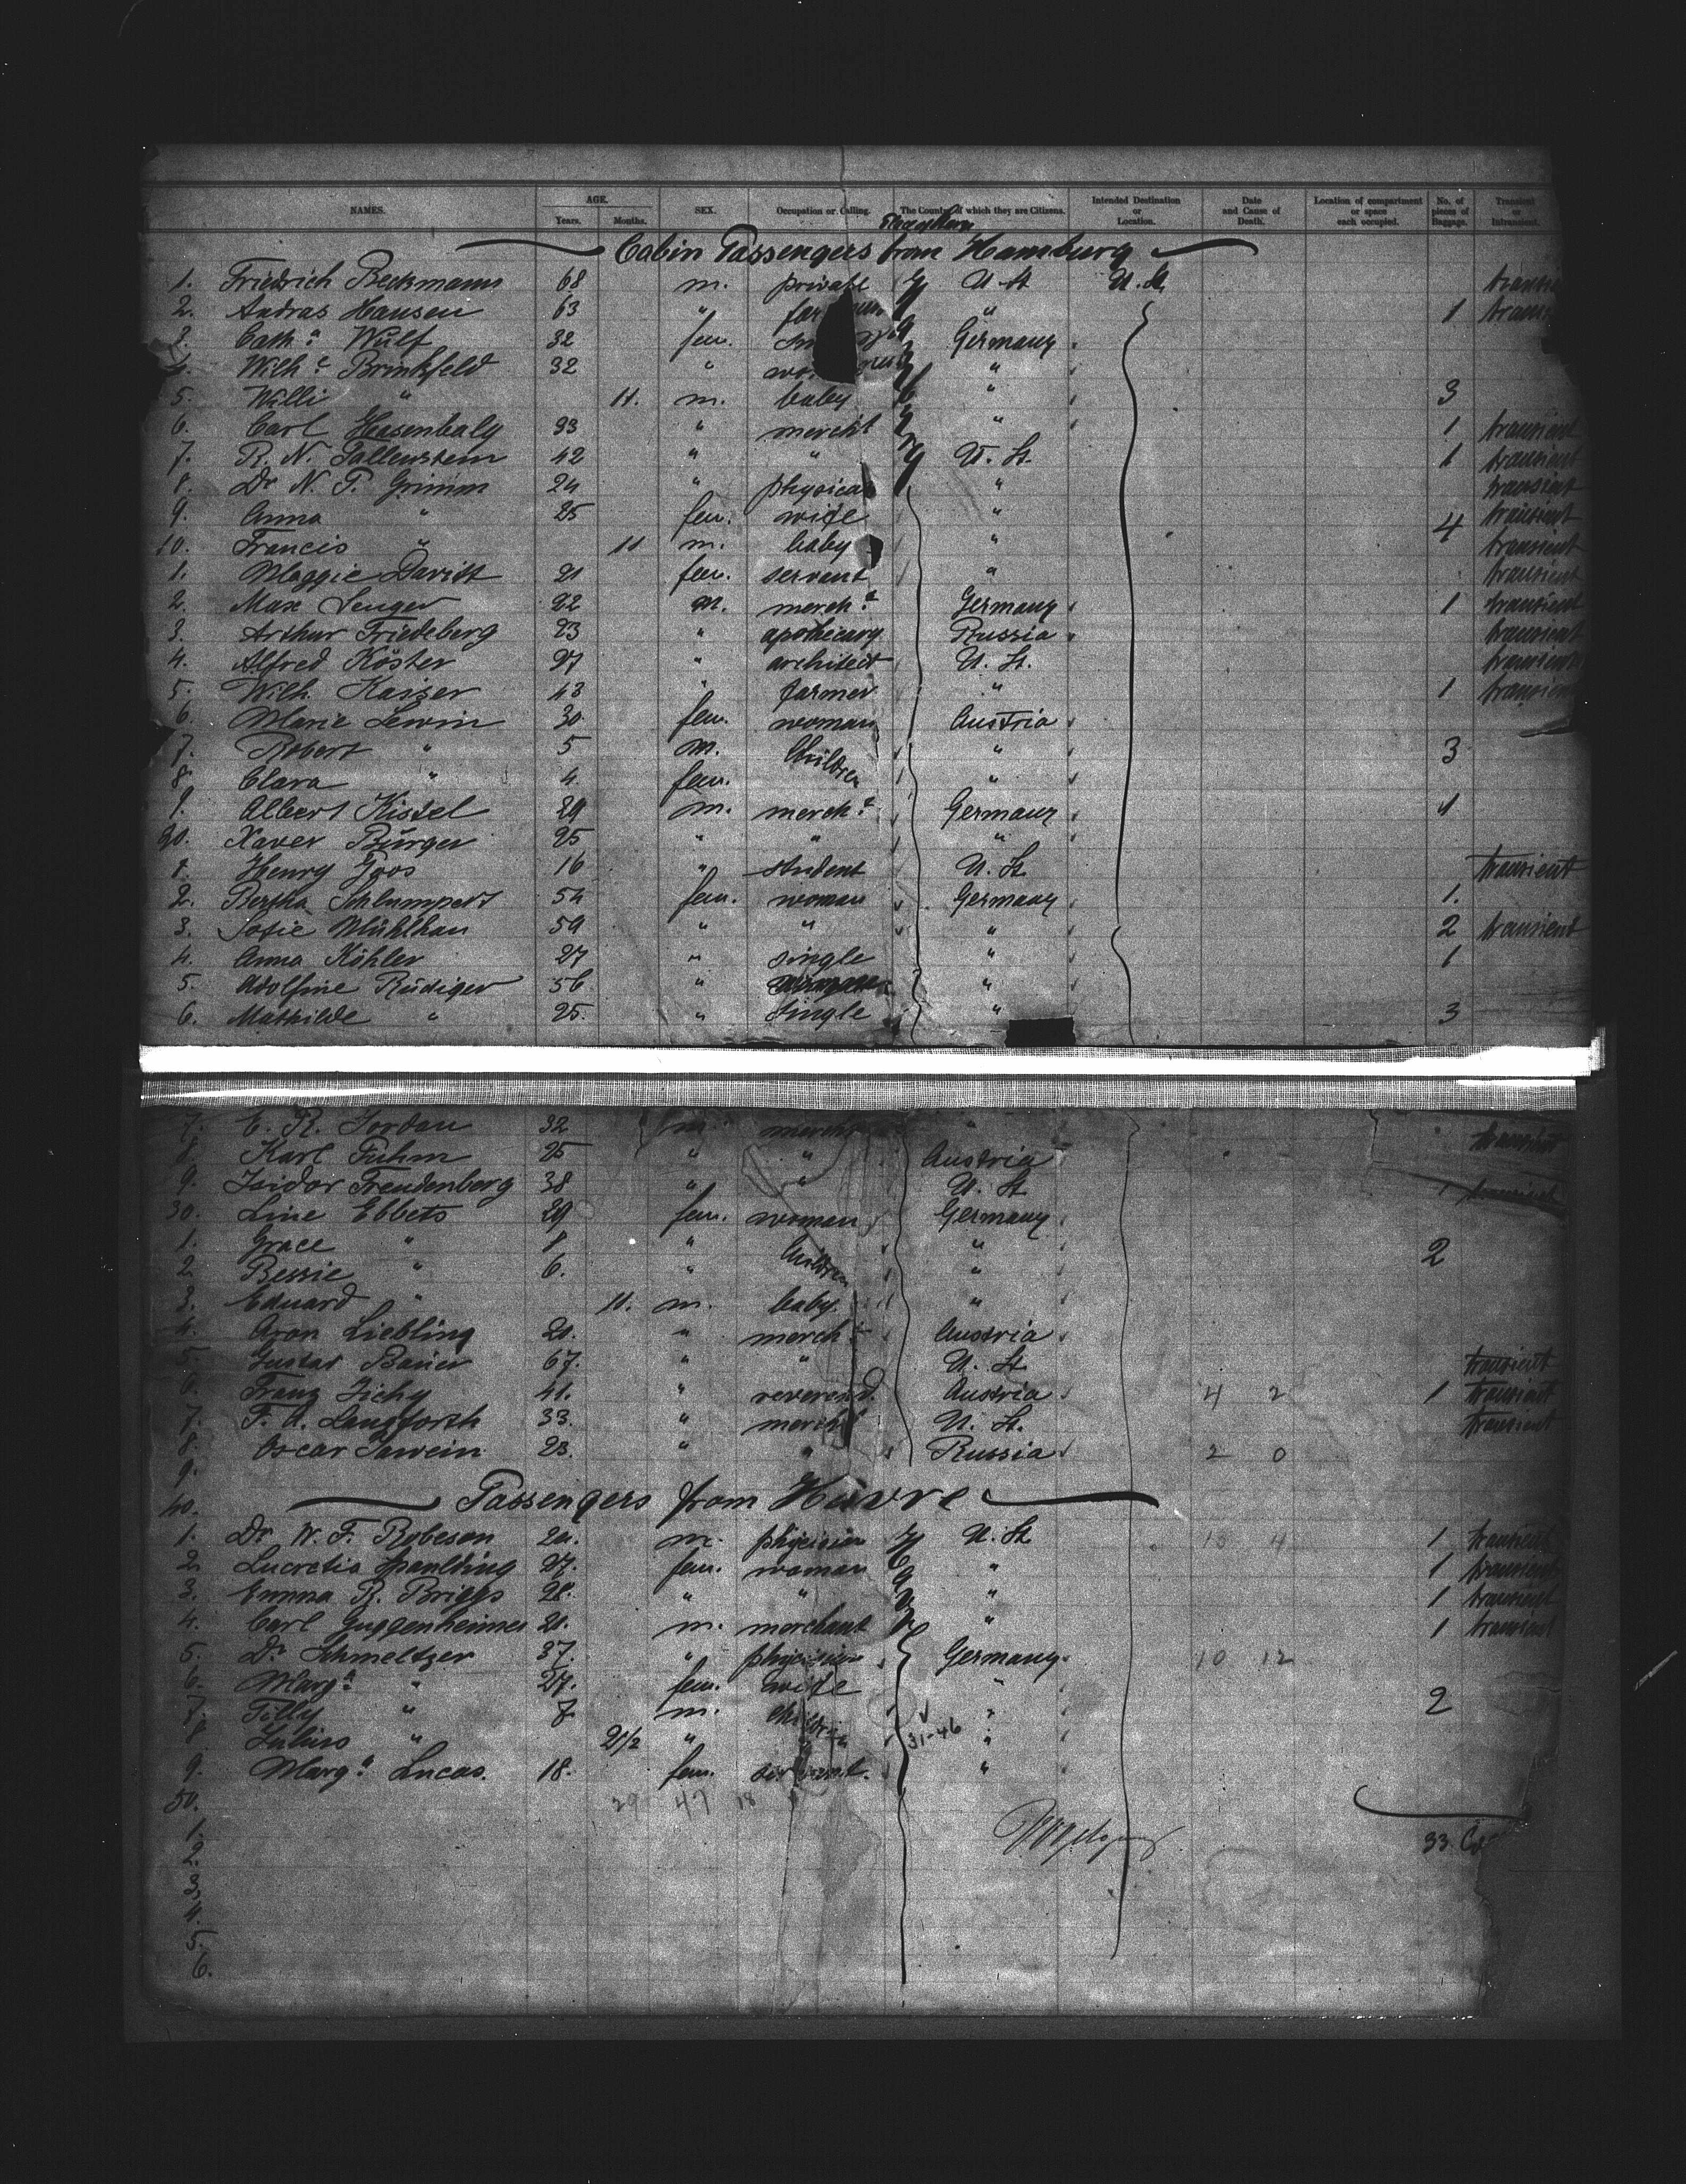 NAMES. AGE. Years. Months. SEX. Occupation or Calling. The Country of which they are Citizens. Intended Destination or Location. Date and Cause of Death. Location of compartment or space each occupied. No. of pieces of Baggage. Transient or Intransient.
Cabin Passengers from Hamburg
1. Friedrich Beckmann 68 m. private U. St. U. St.
2. Andras Hansen 63 " " 1
3. Cath.a Wulf 32 fem. Germany
4. Wilh.e Brinkfeld 32 " "
5. Willi " 11. m. baby " 3
6. Carl Hasenbalg 33 " mercht " 1 transient
7. R. N. Tallenstein 42 " " U. St. 1 transient
8. Dr N. P. Grimm 24 " physician " transient
9. Anna " 25 fem. wife " 4 transient
10. Francis " 11 m. baby " transient
1. Maggie Davitt 21 fem. servant " transient
2. Max Lenger 22 m. merch.t Germany 1 transient
3. Arthur Friedeberg 23 " apothecary Russia transient
4. Alfred Köster 27 " architect U. St. transient
5. Wilh. Kaiser 43 " farmer " 1 transient
6. Marie Lewin 30. fem. woman Austria
7. Robert " 5 m. Children " 3
8. Clara " 4. fem. "
9. Albert Kissel 29 m. merch.t Germany 1
20. Xaver Bürger 25 " " "
1. Henry Goos 16 " student U. St. transient
2. Bertha Schlumpert 54 fem. woman Germany 1.
3. Sofie Mühlhan 59 " " " 2 transient
4. Anna Köhler 27 " single " 1
5. Adolfine Rüdiger 56 " "
6. Mathilde " 25. " single " 3
7. E. R. Jordan 32 m. mercht " transient
8. Karl Fuhm 25 " " Austria
9. Isidor Freudenberg 38 " " U. St. 1 transient
30. Line Ebbets 29 fem. woman Germany
1. Grace " 8 " Children " 2
2 Bessie " 6. " "
3. Eduard " 11. m. baby "
4. Aron Liebling 21. " merch.t Austria
5. Gustav Bauer 67. " " U. St. transient
6. Franz Zichy 41. " reverend. Austria 4 2 1 transient
7. F. A. Langforth 33. " mercht U. St. transient
8. Oscar Sawein 23. " " Russia 2 0
9.
40. Passengers from Havre
1. Dr W. F. Robeson 24. m. physician U. St 10 4 1 transient
2. Lucretia Spaulding 27. fem. woman " 1 transient
3. Emma R. Briggs 28. " " " 1 transient
4. Carl Guggenheimer 21. m. merchant " 1 transient
5. Dr Schmeltzer 37. " physician Germany 10 12
6. Marg.a " 27. fem. wife "
7. Tilly " 7 m. children " 2
8. Julius " 2 1/2 " 31-46 "
9. Marg.a Lucas. 18. fem. servant. "
50. 29 47 18
1. 33
2.
3.
4.
5.
6.